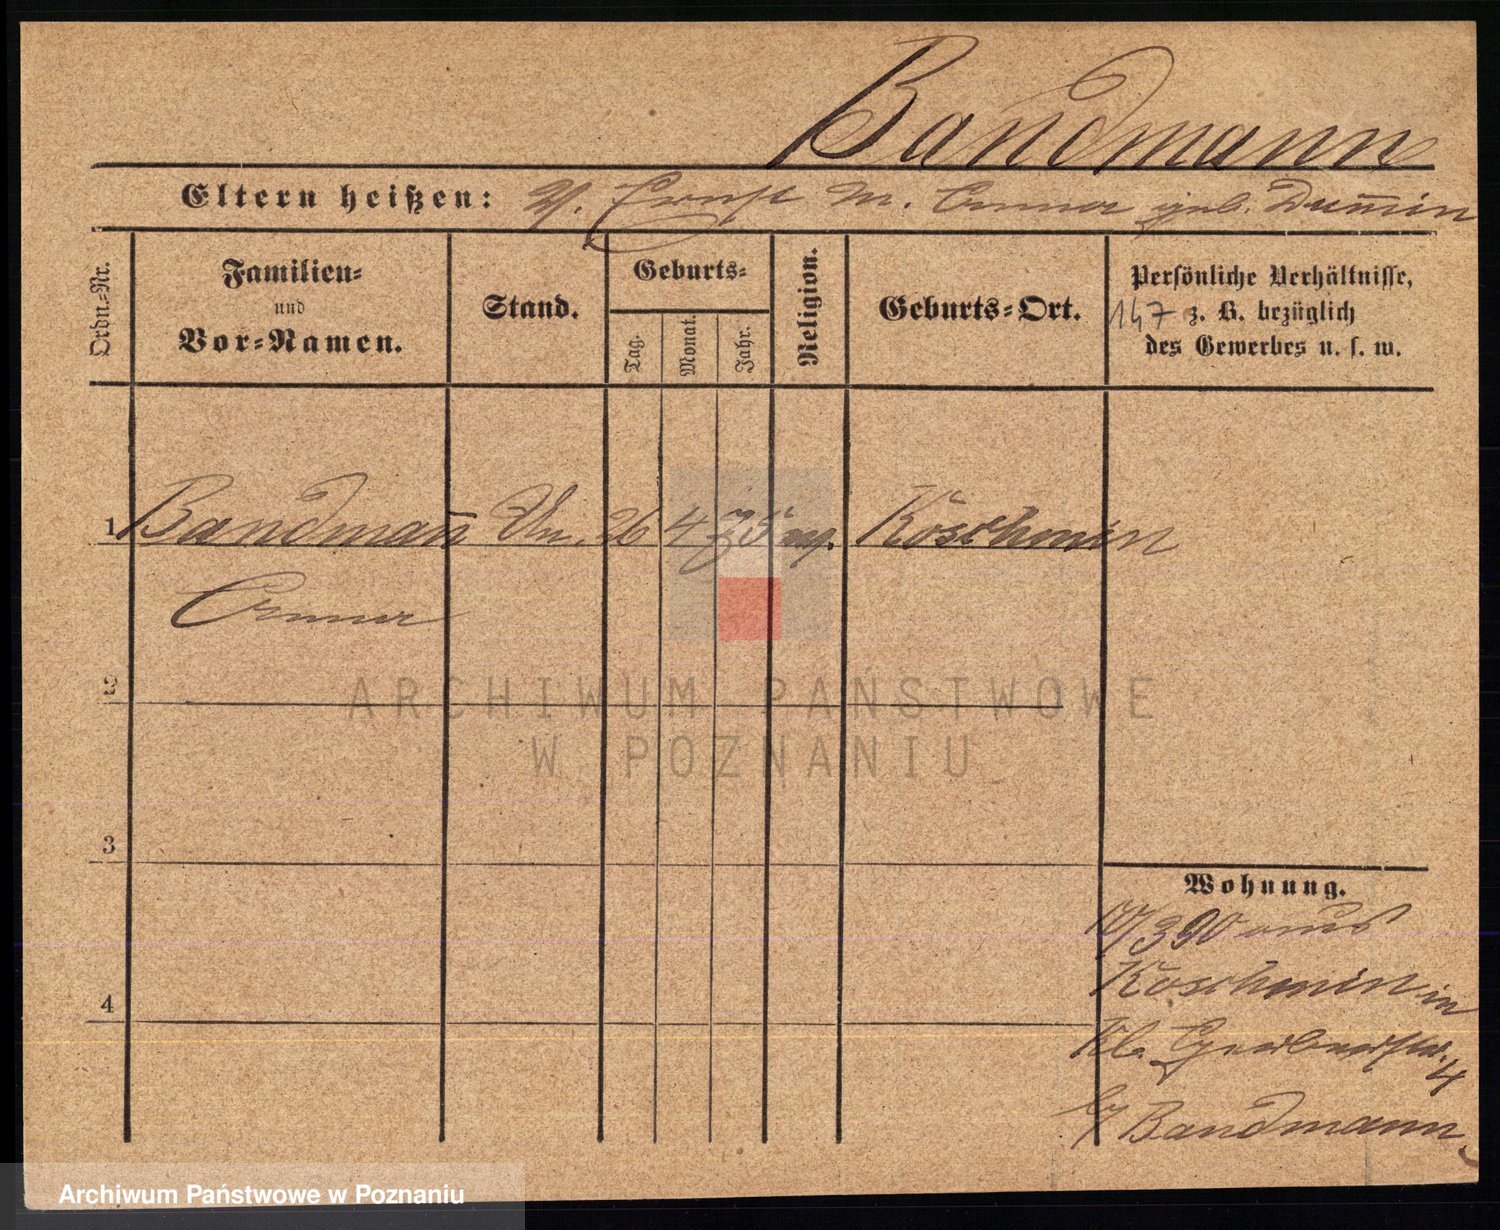 Bandmann
Eltern heißen: V. Ernst M. Anna geb. Dumin
Ordn.-Nr.
Familien- und Vor-Namen.
Stand.
Geburts-
Tag.
Monat.
Jahr.
Religion.
Geburts-Ort.
Persönliche Verhältnisse,
147 z. B. bezüglich
des Gewerbes u. s. w.
1 Bandmann 26 4 75 Koschmin
Anna
2
3
4
Wohnung.
390 aus
Koschmin in
Kl. Gerberstr. 4
b/ Bandmann
ARCHIWUM PAŃSTWOWE
W POZNANIU
Archiwum Państwowe w Poznaniu